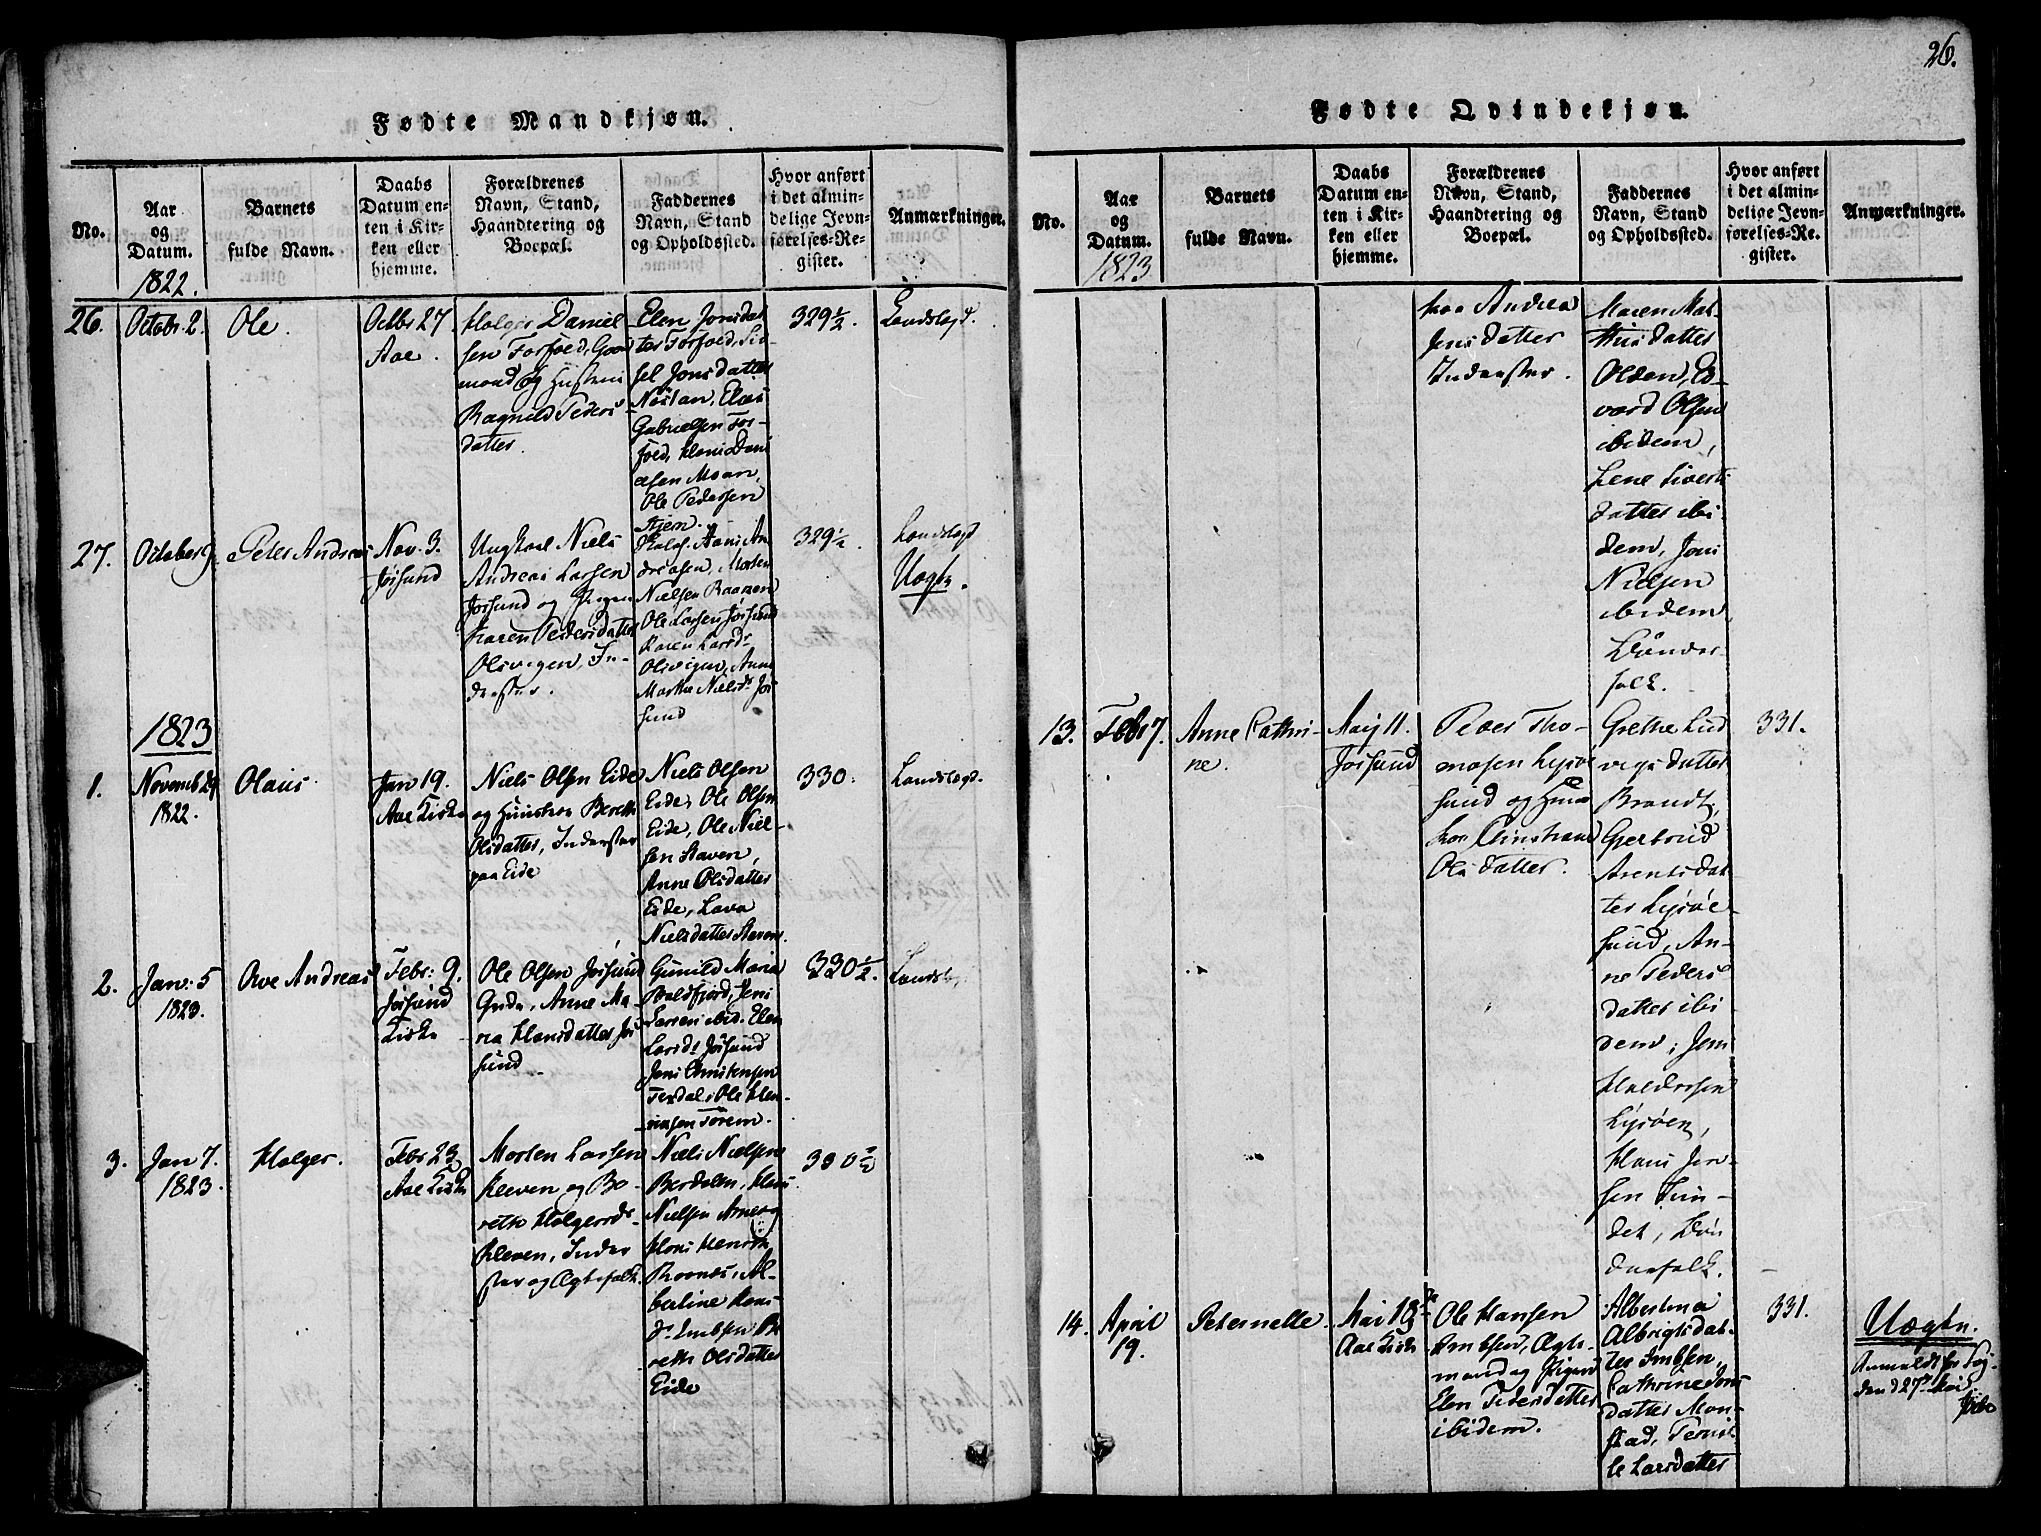 26.
Fødte Mandkjøn.
No.
Aar
og
Datum.
1822.
Barnets
fulde Navn.
Daabs
Datum en-
ten i Kir-
ken eller
hjemme.
Forældrenes
Navn, Stand,
Haandtering og
Boepæl.
Faddernes
Navn, Stand
og Opholdssted.
Hvor anført
i det almin-
delige Jevn-
førelses-Re-
gister.
Anmærkninger.
26.
Octobr. 2.
Ole.
Octbr 27
Aae.
Holger Daniel
sen Forfoed,
mand og
Ragnild Peders
datter.
Elen Jonsdat
ter Forfoed,
sel Jonsdatter
Nøstan, Elias
Gabrielsen For-
foed, Hans Dani
elsen Moan,
Ole Pedersen
329½.
Landslagd.
27.
October 9.
Peter Andreas
Nov. 3.
Jøssund
Ungkarl Niels
Andreas Larsen
Jøssund og Pigen
Karen Pedersdatter
Olsvigen, In-
derster.
dreasen, Morten
Nielsen Raanen
Ole Larsen Jøssund
Karen Larsd.
Olsvigen, Anne
Martha Nielsd. Jøs
sund
329½.
Landslagd
Uægte.
1823
1.
Novemb 29
1822.
Olaus
Jan 19.
Aae Kirke
Niels Olsen Eide
og Hustroe Bereth
Olsdatter, Inderster
paa Eide
Niels Olsen
Eide, Ole Olsen
Eide, Ole Niel-
sen Staven,
Anne Olsdatter
Eide, Lava
Nielsdatter
330.
Landslagd.
2.
Janv: 5
1823.
Ove Andreas
Febr: 9.
Jøssund
Kirke
Ole Olsen Jøssund
Anne Ma-
ria Hansdatter Jøs
sund
Gunild Maria
Jens
Larsen ibid. Elen
Larsd. Jøssund
Jens Christensen
Terdal, Ole Hen-
ningsen Tørem.
330½.
Lands
3.
Jan 7.
1823.
Holger.
Febr 23
Aae Kirke
Morten Larsen
Kleven og Be-
reth Holgersd.
Kleven, Inder
ster og Ægtefolk.
Niels Nielsen
Berdalen, Hans
Nielsen Arnevig
Hans Henrik
Al-
bertine Hans
d. Embsen, Be
reth Olsdatter
Eide
330
Fødte Qvindekjøn.
No.
Aar
og
Datum.
1823
Barnets
fulde Navn.
Daabs
Datum en-
ten i Kir-
ken eller
hjemme.
Forældrenes
Navn, Stand,
Haandtering og
Boepæl.
Faddernes
Navn, Stand
og Opholdssted.
Hvor anført
i det almin-
delige Jevn-
førelses-Re-
gister.
Anmærkninger.
Andrea
Jensdatter
Inderster.
Maren Mat-
thisdatter
Olden, Ed-
vard Olsen
ibidem,
Lene Siverts
datter ibi
dem, Jens
Nielsen
ibidem,
Bønder-
folk.
13.
Feb 7.
Anne Cathri-
ne.
Maij 11.
Jøssund
Peder Tho-
masen Lysøe
sund og Hust
roe Christiane
Olsdatter.
Grethe Lud
vigsdatter
Brandt,
Gertrud
Arentsdat-
ter Lysøe-
sund, An-
ne Peders
datter ibi
dem, Jens
Haldorsen
Lysøen,
Hans Jen-
sen Sun-
det, Bøn
derfolk.
331.
14.
April
19.
Peternelle.
Mai 18
Aae Kirke
Ole Hansen
Embsen, Ægte
mand og Pigen
Elen Pedersdatter
ibidem.
Albertina
Albrigtsdat-
ter Embsen,
Cathrine Jons
datter Mon-
stad, Pernil
le Larsdatter
331.
Uægte.
Anmeldt for Fog-
den d 27de Mai